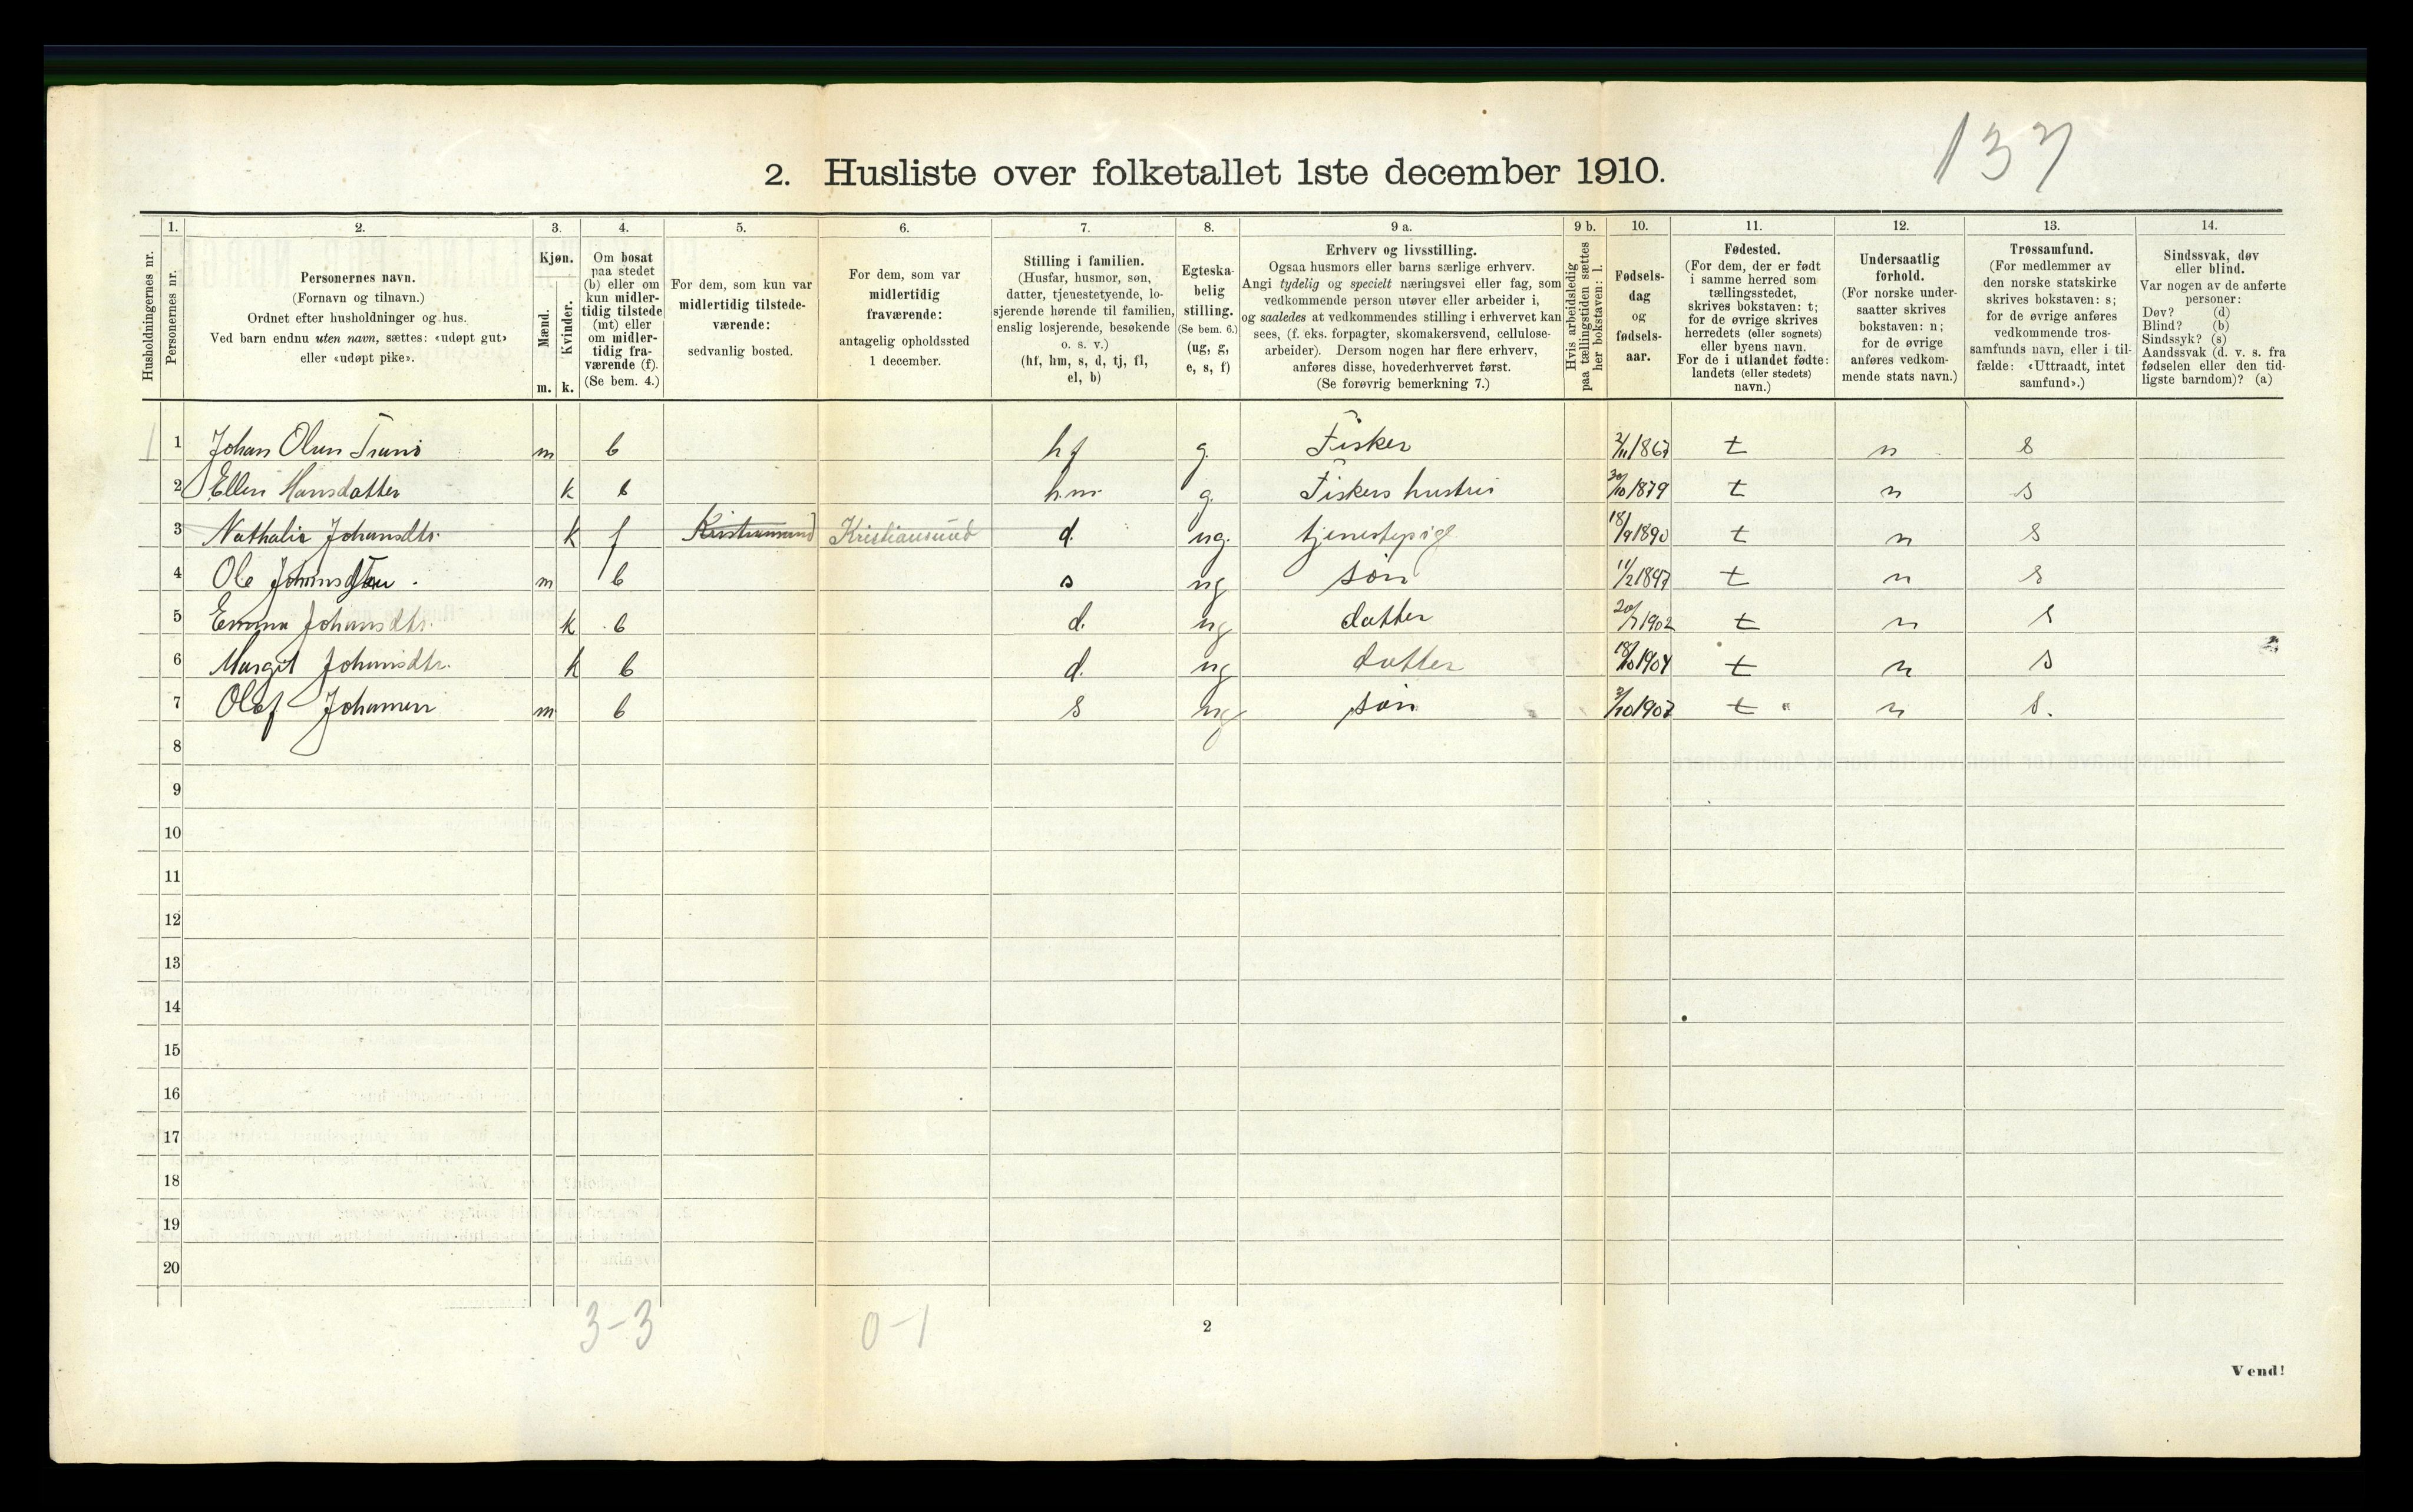 137
2. Husliste over folketallet 1ste december 1910.
Husholdningernes nr.
1.
Personernes nr.
2.
Personernes navn.
(Fornavn og tilnavn.)
Ordnet efter husholdninger og hus.
Ved barn endnu uten navn, sættes: «udøpt gut»
eller «udøpt pike».
3.
Kjøn.
Mænd.
Kvinder.
m. k.
4.
Om bosat
paa stedet
(b) eller om
kun midler-
tidig tilstede
(mt) eller
om midler-
tidig fra-
værende (f).
(Se bem. 4.)
5.
For dem, som kun var
midlertidig tilstede-
værende:
sedvanlig bosted.
6.
For dem, som var
midlertidig
fraværende:
antagelig opholdssted
1 december.
7.
Stilling i familien.
(Husfar, husmor, søn,
datter, tjenestetyende, lo-
sjerende hørende til familien,
enslig losjerende, besøkende
o. s. v.)
(hf, hm, s, d, tj, fl,
el, b)
8.
Egteska-
belig
stilling.
(Se bem. 6.)
(ug, g,
e, s, f)
9 a.
Erhverv og livsstilling.
Ogsaa husmors eller barns særlige erhverv.
Angi tydelig og specielt næringsvei eller fag, som
vedkommende person utøver eller arbeider i,
og saaledes at vedkommendes stilling i erhvervet kan
sees, (f. eks. forpagter, skomakersvend, cellulose-
arbeider). Dersom nogen har flere erhverv,
anføres disse, hovederhvervet først.
(Se forøvrig bemerkning 7.)
9 b.
Hvis arbeidsledig
paa tællingstiden sættes
her bokstaven: l.
10.
Fødsels-
dag
og
fødsels-
aar.
11.
Fødested.
(For dem, der er født
i samme herred som
tællingsstedet,
skrives bokstaven: t;
for de øvrige skrives
herredets (eller sognets)
eller byens navn.
For de i utlandet fødte:
landets (eller stedets)
navn.)
12.
Undersaatlig
forhold.
(For norske under-
saatter skrives
bokstaven: n;
for de øvrige
anføres vedkom-
mende stats navn.)
13.
Trossamfund.
(For medlemmer av
den norske statskirke
skrives bokstaven: s;
for de øvrige anføres
vedkommende tros-
samfunds navn, eller i til-
fælde: «Uttraadt, intet
samfund».)
14.
Sindssvak, døv
eller blind.
Var nogen av de anførte
personer:
Døv? (d)
Blind? (b)
Sindssyk? (s)
Aandssvak (d. v. s. fra
fødselen eller den tid-
ligste barndom)? (a)
1 1 Johan Olsen m b hf g. Fisker 2/11 1867 t n s
2 Ellen Hansdatter k b hm g. Fiskers hustru 30/10 1879 t n s
3 Nathalie Johansdtr. k f Kristiansund Kristiansund d. ug. tjenestepige 18/9 1890 t n s
4 Ole m b s ug søn 11/2 1897 t n s
5 Emma Johansdtr. k b d. ug datter 20/7 1902 t n s
6 Margit Johansdtr. k b d. ug datter 18/10 1904 t n s
7 Olaf Johansen m b s ug søn 3/10 1907 t " n s.
8
9
10
11
12
13
14
15
16
17
18
19
20
3-3 0-1
2
Vend!